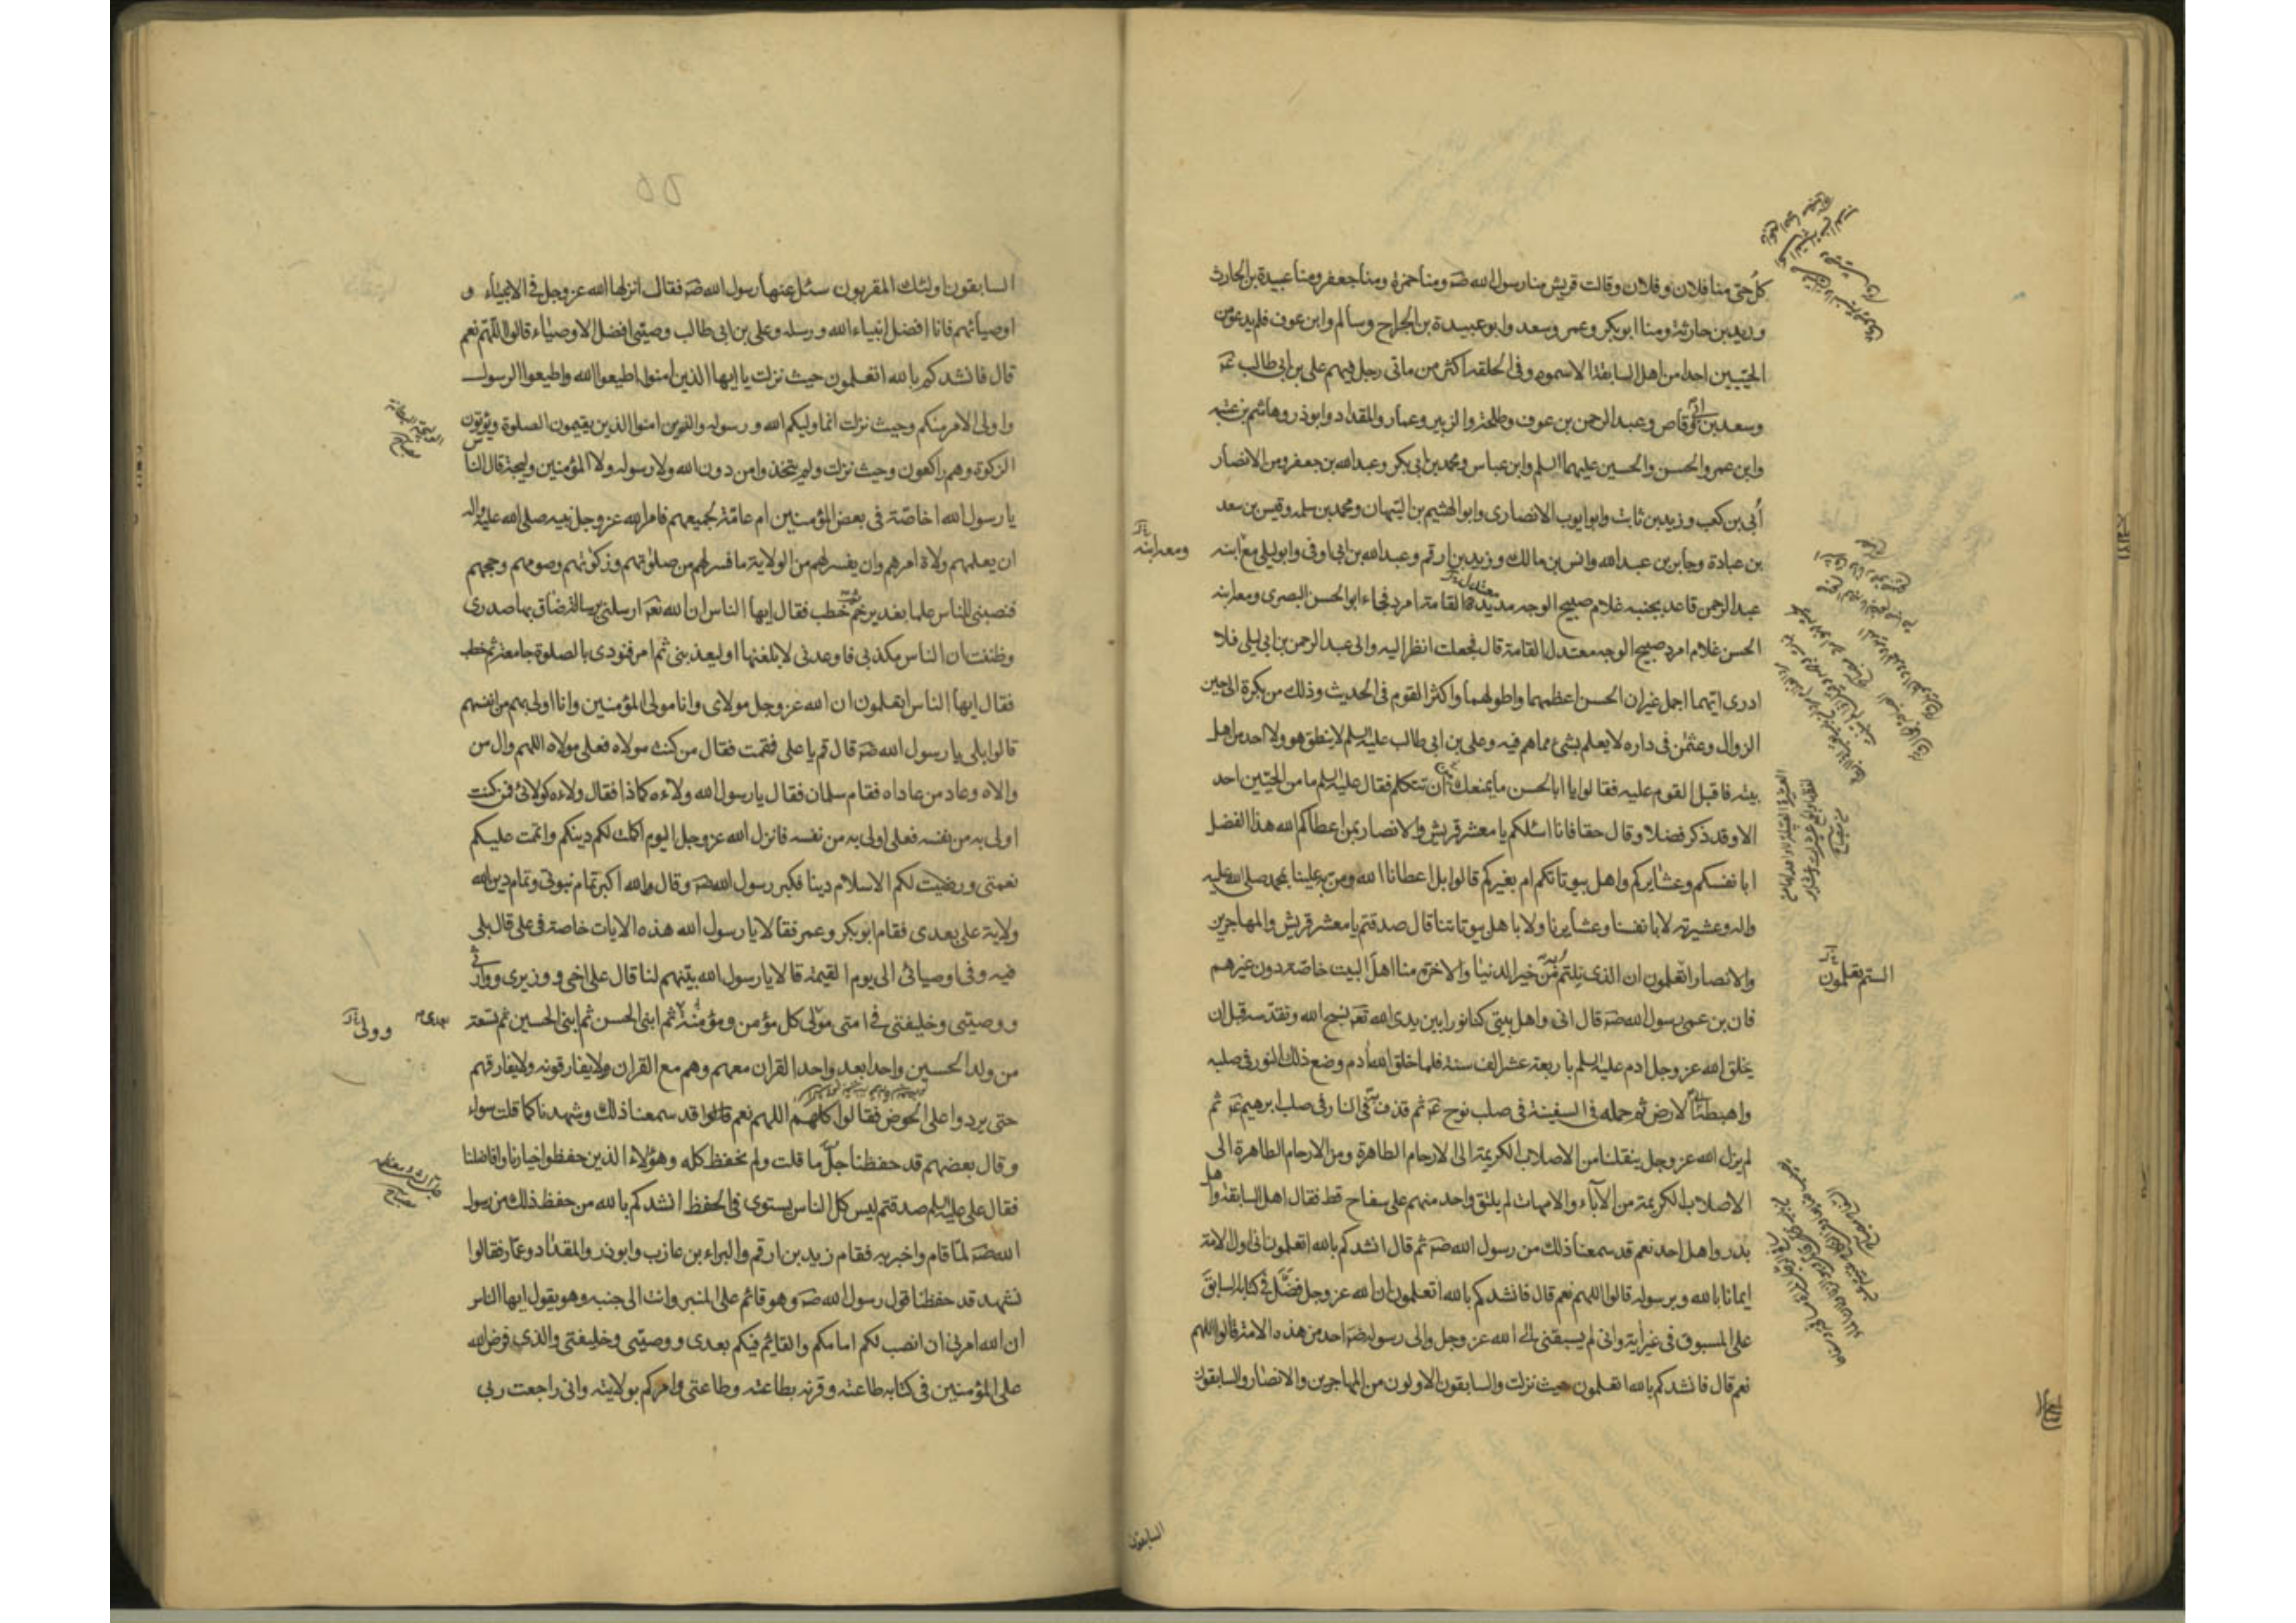 كل حى منا فلان و فلان وقالت قريش منا رسول الله صَۃ ومنا حمزة ومنا جعفر ومنا عبيدة بن الحارث
وزيد بن حارثة ومنا ابو بكر وعمر وسعد وابو عبيدة بن الجراح وسالم وابن عوف فلم يدعو من
الحيّين احدا من اهل السابقة الا سموه وفى الحلقه اكثر من ماتى رجل فيهم على بن ابى طالب عَۃ
وسعد بن ابى وقاص وعبد الرحمن بن عوف وطلحة والزبير وعمار والمقداد وابوذر وهاشم بن عتبه
وابن عمر والحسن والحسين عليهما السلم وابن عباس ومحمد بن ابى بكر وعبد الله بن جعفر ومن الانصار
أبى بن كعب وزيد بن ثابت وابو ايوب الانصارى وابو الهثيم بن التيهان ومحمد بن سلمه وقيس بن سعد
بن عبادة وجابر بن عبد الله وانس بن مالك وزيد بن ارقم وعبد الله بن ابى اوفى وابو ليلى مع ابنه
ومعه ابنه
عبد الرحمن قاعد بجنبه غلام صبيح الوجه مديد القامة امرد فجاء ابو الحسن البصرى ومعه ابنه
الحسن غلام امرد صبيح الوجه معتدل القامة قال فجعلت انظر اليه والى عبد الرحمن بن ابى ليلى فلا
ادرى ايهما اجمل غير ان الحسن اعظمهما واطولهما واكثر القوم فى الحديث وذلك من بكرة الى حين
الزوال وعثمن فى داره لا يعلم بشئ مما هم فيه وعلى بن ابى طالب عليه السلم لا ينطق هو ولا احد من اهل
بيته فاقبل القوم عليه فقالوا يا ابا الحسن ما يمنعك ان تتكلم فقال عليه السلم ما من الحيّين احد
الا وقد ذكر فضلا وقال حقا فانا اسئلكم يا معشر قريش والانصار بمن اعطاكم الله هذا الفضل
ابانفسكم وعشايركم واهل بيوتاتكم ام بغيركم قالوا بل اعطانا الله ومن به علينا بمحمد صلى الله عليه
واله وعشيرته لا بانفسنا وعشايرنا ولا باهل بيوتاتنا قال صدقتم يا معشر قريش والمهاجرين
والانصار اتعلمون ان الذى نلتم من خير الدنيا والاخرة منا اهل البيت خاصّة دون غيرهم
الستم تعلمون
فان بن عمى رسول الله صَۃ قال انى واهل بيتى كنا نورا بين يدى الله تعَۃ نسبح الله ونقدّسه قبل ان
يخلق الله عز وجل ادم عليه السلم باربعة عشر الف سنة فلما خلق الله ادم وضع ذلك النور فى صلبه
واهبطنا الارض ثم حمله فى السفينة فى صلب نوح عَۃ ثم قذف به فى النار فى صلب ابرهيم عَۃ ثم
لم يزل الله عز وجل ينقلنا من الاصلاب الكريمة الى الارحام الطاهرة ومن الارحام الطاهرة الى
الاصلاب الكريمة من الآباء والامهات لم يلتق واحد منهم على سفاح قط فقال اهل السابقة واهل
بدر واهل احد نعم قد سمعنا ذلك من رسول الله صَۃ ثم قال انشدكم بالله اتعلمون انى اول الامة
ايمانا بالله وبرسوله قالوا اللهم نعم قال فانشدكم بالله اتعلمون ان الله عز وجل فضّل فى كتابه السابق
على المسبوق فى غير اية وانى لم يسبقنى الى الله عز وجل والى رسوله صَۃ احد من هذه الامة قالوا اللهم
نعم قال فانشدكم بالله اتعلمون حيث نزلت والسابقون الاولون من المهاجرين والانصار والسابقون
السابقون
السابقون اولئك المقربون سئل عنها رسول الله صَۃ فقال انزلها الله عز وجل فى الانبياء و
اوصيائهم فانا افضل انبياء الله ورسله وعلى بن ابى طالب وصيّى افضل الاوصياء قالوا اللّهم نعم
قال فانشدكم بالله اتعلمون حيث نزلت يا ايها الذين امنوا اطيعوا الله واطيعوا الرسول
واولى الامر منكم وحيث نزلت انما وليكم الله ورسوله والذين امنوا الذين يقيمون الصلوة ويؤتون
الزكوة وهم راكعون وحيث نزلت ولم يتخذوا من دون الله ولا رسوله ولا المؤمنين وليجة قال الناس
يا رسول الله اخاصّة فى بعض المؤمنين ام عامّة لجميعهم فامر الله عز وجل نبيه صلى الله عليه واله
ان يعلمهم ولاة امرهم وان يفسر لهم من الولاية ما فسر لهم من صلوتهم وزكوتهم وصومهم وحجهم
فنصبنى للناس علما بغدير خم ثم خطب فقال ايها الناس ان الله تعَۃ ارسلنى برسالة ضاق بها صدرى
وظننت ان الناس مكذبى فاوعدنى لابلغنها او ليعذبنى ثم امر فنودى بالصلوة جامعة ثم خطب
فقال ايها الناس اتعلمون ان الله عز وجل مولاى وانا مولى المؤمنين وانا اولى بهم من انفسهم
قالوا بلى يا رسول الله صَۃ قال قم يا على فقمت فقال من كنت مولاه فعلى مولاه اللهم وال من
والاه وعاد من عاداه فقام سلمان فقال يا رسول الله ولاءه كماذا فقال ولاءه كولائى فمن كنت
اولى به من نفسه فعلى اولى به من نفسه فانزل الله عز وجل اليوم اكملت لكم دينكم واتممت عليكم
نعمتى ورضيت لكم الاسلام دينا فكبر رسول الله صَۃ وقال والله اكبر تمام نبوتى وتمام دين الله
ولاية على بعدى فقام ابو بكر وعمر فقالا يا رسول الله هذه الايات خاصة فى على قال بلى
فيه وفى اوصيائى الى يوم القيمة قالا يا رسول الله بيّنهم لنا قال على اخى ووزيرى ووارثى
ووصيّى وخليفتى فى امتى مولى كل مؤمن ومؤمنة ثم ابنى الحسن ثم ابنى الحسين ثم تسعة
بعدى
وولى
من ولد الحسين واحدا بعد واحد القران معهم وهم مع القران ولا يفارقونه ولا يفارقهم
حتى يردوا على الحوض فقالوا كلهم اللهم نعم قالوا قد سمعنا ذلك وشهدنا كما قلت سواء
وقال بعضهم قد حفظنا جلّ ما قلت ولم نحفظ كله وهؤلاء الذين حفظوا خيارنا وافاضلنا
فقال على عليه السلم صدقتم ليس كل الناس يستوى فى الحفظ انشدكم بالله من حفظ ذلك من رسول
الله صَۃ لمّا قام واخبر به فقام زيد بن ارقم والبراء بن عازب وابوذر والمقداد وعمار فقالوا
نشهد قد حفظنا قول رسول الله صَۃ وهو قائم على المنبر وانت الى جنبه وهو يقول ايها الناس
ان الله امرنى ان انصب لكم امامكم والقائم فيكم بعدى ووصيّى وخليفتى والذى فرض الله
على المؤمنين فى كتابه طاعته وقرنه بطاعته وطاعتى وامركم بولايته وانى راجعت ربى